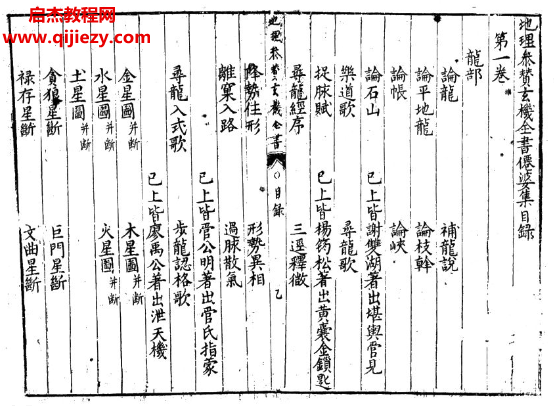 启杰教程网
www.qijiezy.com
地理參贊玄機全書僊婆集目錄
第一卷
龍部
論龍 補龍說
論平地龍 論枝幹
論帳 論峽
論石山 已上皆謝雙湖著出堪輿管見
樂道歌 尋龍歌
捉脉賦 已上皆楊筠松著出黃囊金鎖匙
尋龍經序 三逕釋微
地理參贊玄機全書 〇目錄 乙
降勢住形 形勢異相
離窠入路 過脉散氣
已上皆管公明著出管氏指蒙
尋龍入式歌 步龍認格歌
已上皆廖禹公著出泄天機
金星圖并断 木星圖并断
水星圖并断 火星圖并断
土星圖并断
貪狼星斷 巨門星斷
禄存星斷 文曲星斷